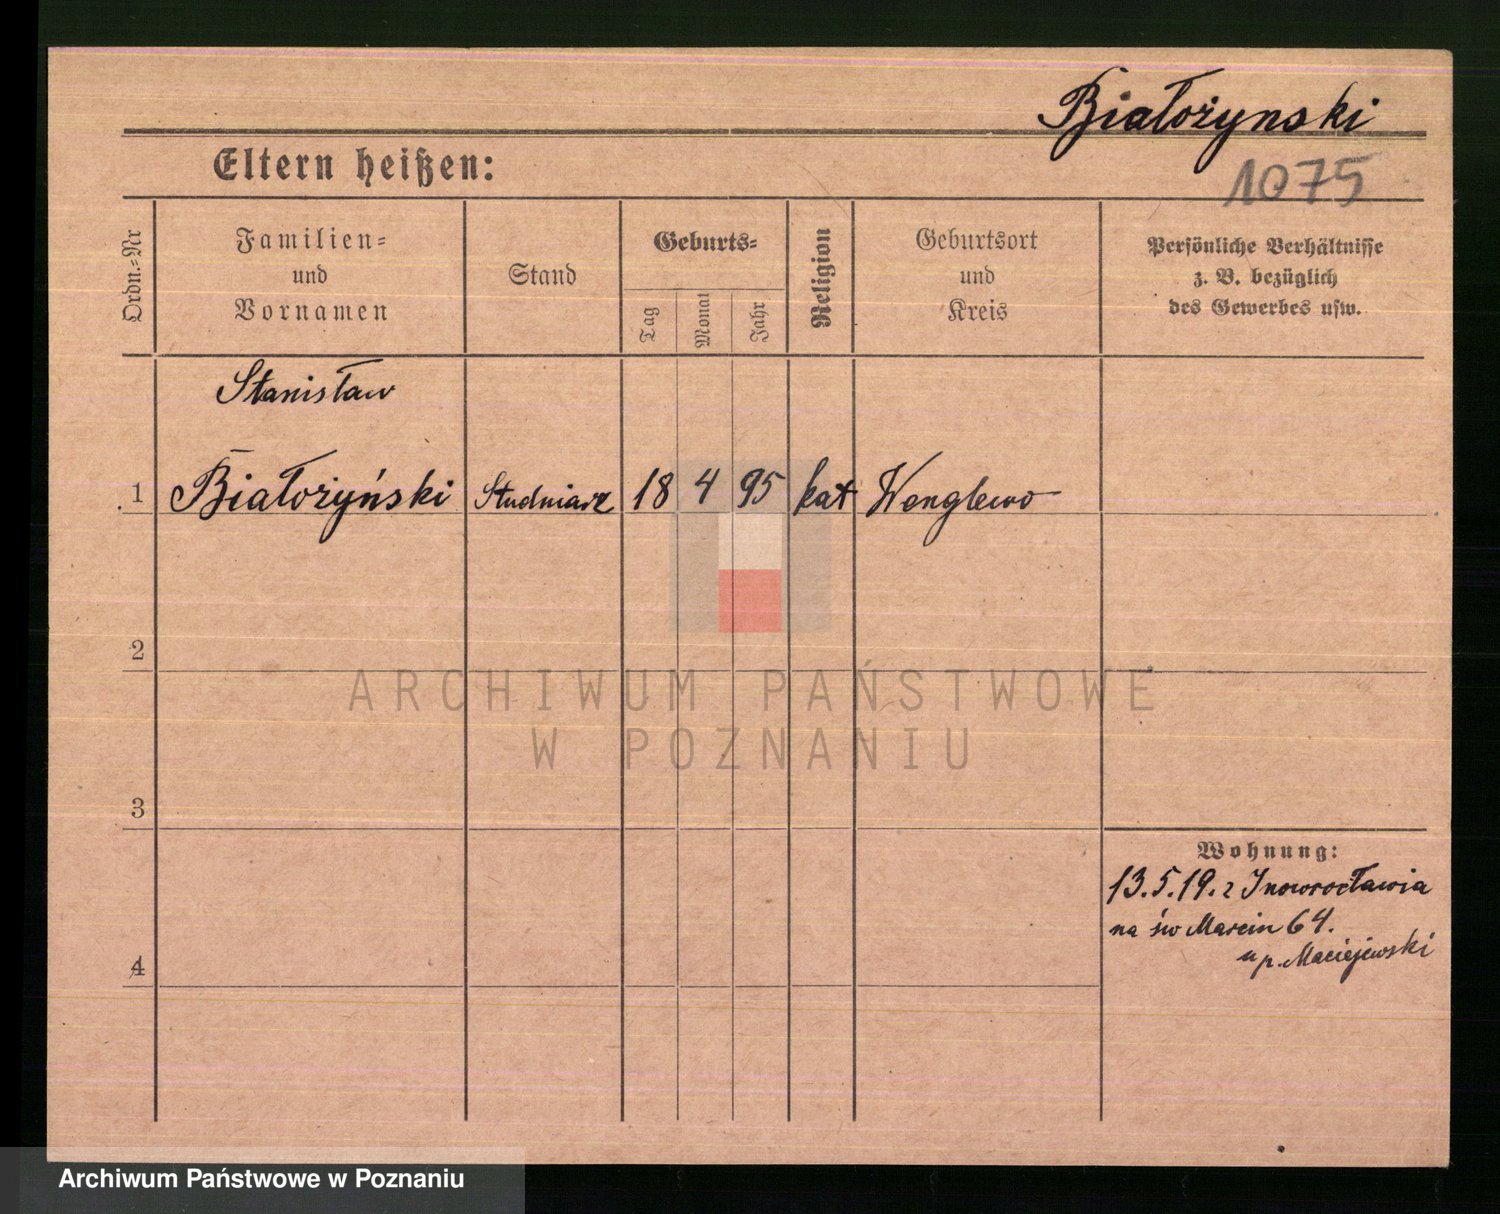 Białożynski
Eltern heißen:
1075
Ordn.-Nr
Familien-
und
Vornamen
Stand
Geburts-
Tag
Monat
Jahr
Religion
Geburtsort
und
Kreis
Persönliche Verhältnisse
z. B. bezüglich
des Gewerbes usw.
Stanisław
1 Białożyński Studniarz 18 4 95 kat Wenglewo
2
ARCHIWUM PAŃSTWOWE
W POZNANIU
3
Wohnung:
13.5.19. z Inowrocławia
na św Marcin 64.
u p. Maciejewski
4
Archiwum Państwowe w Poznaniu